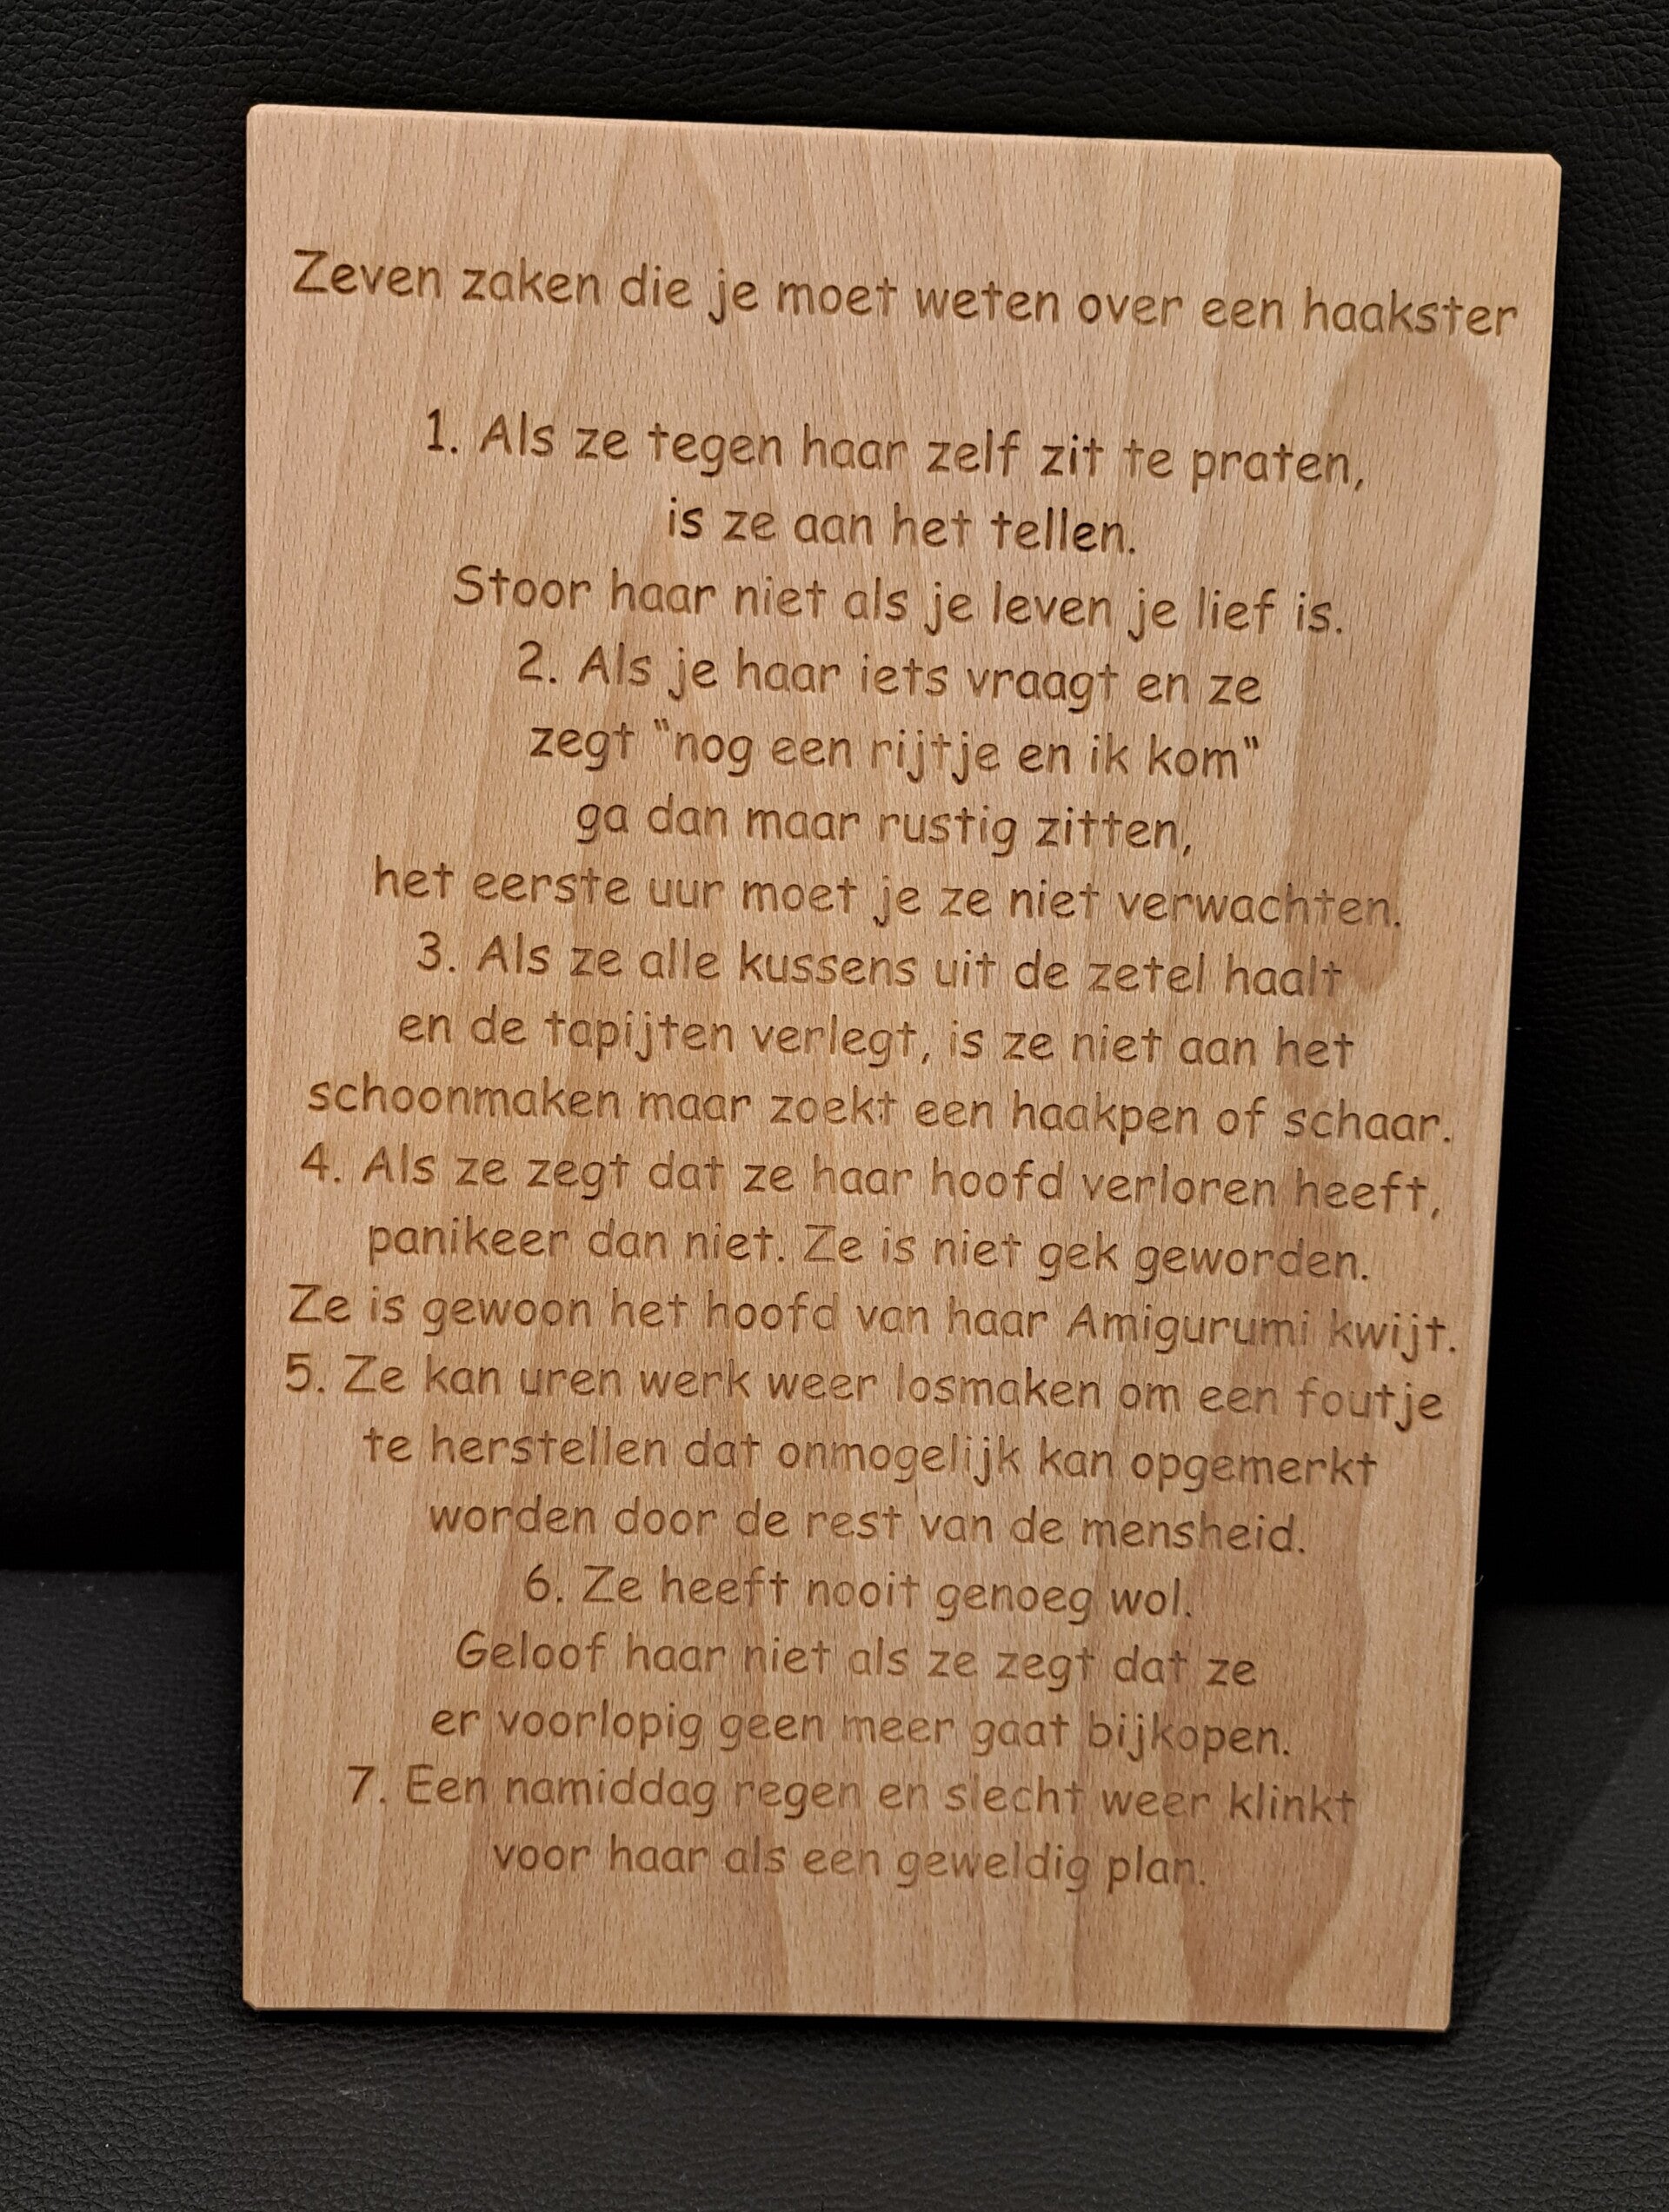 Zeven zaken die je moet weten over een haakster
1. Als ze tegen haar zelf zit te praten,
is ze aan het tellen.
Stoor haar niet als je leven je lief is.
2. Als je haar iets vraagt en ze
zegt "nog een rijtje en ik kom"
ga dan maar rustig zitten,
het eerste uur moet je ze niet verwachten.
3. Als ze alle kussens uit de zetel haalt
en de tapijten verlegt, is ze niet aan het
schoonmaken maar zoekt een haakpen of schaar.
4. Als ze zegt dat ze haar hoofd verloren heeft,
panikeer dan niet. Ze is niet gek geworden.
Ze is gewoon het hoofd van haar Amigurumi kwijt.
5. Ze kan uren werk weer losmaken om een foutje
te herstellen dat onmogelijk kan opgemerkt
worden door de rest van de mensheid.
6. Ze heeft nooit genoeg wol.
Geloof haar niet als ze zegt dat ze
er voorlopig geen meer gaat bijkopen.
7. Een namiddag regen en slecht weer klinkt
voor haar als een geweldig plan.